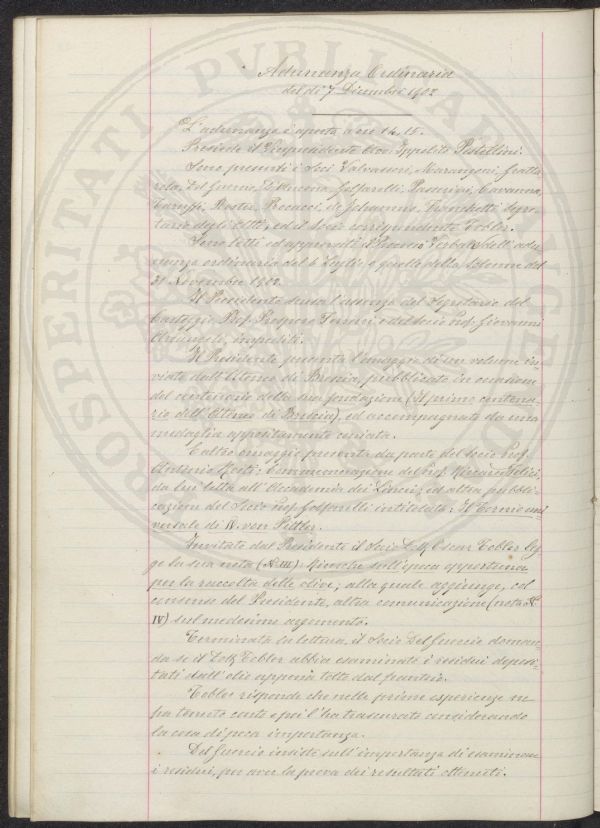 Adunanza Ordinaria
del dì 7 Dicembre 1902
L'adunanza è aperta a ore 14,15.
Presiede il Vicepresidente Cav. Ippolito Pestellini.
Sono presenti i Soci Valvassori, Marangoni, Gratta
rola, Del Guercio, Golfarelli, Passerini, Caruana,
Taruffi, Bastia, Procacci, de Johannis, Franchetti Segre-
tario degli Atti, ed il Socio corrispondente Tobler.
Sono letti ed approvati il Processo Verbale dell'adu
nanza ordinaria del 6 Luglio e quello della Solenne del
31 Novembre 1902.
Il Presidente scusa l'assenza del Segretario del
Carteggio Prof. Prospero Ferrari e del Socio Prof. Giovanni
Arcangeli, impediti.
Il Presidente presenta l'omaggio di un volume in
viato dall'Ateneo di Brescia, pubblicato in occasione
del centenario della sua fondazione (Il primo centena
rio dell'Ateneo di Brescia), ed accompagnato da una
medaglia appositamente coniata.
E altro omaggio presenta da parte del Socio Prof.
Antonio Roiti: Commemorazione del Prof. Riccardo Felici,
da lui letta all'Accademia dei Lincei; ed altra pubbli
cazione del Socio Prof. Golfarelli intitolata: Il Tornio uni
versale di W. von Pittler.
Invitato dal Presidente il Socio Dott. Oscar Tobler leg
ge la sua nota (N. III) Ricerche sull'epoca opportuna
per la raccolta delle olive; alla quale aggiunge, col
consenso del Presidente, altra comunicazione (nota N.
IV) sul medesimo argomento.
Terminata la lettura, il Socio Del Guercio doman
da se il Dott. Tobler abbia esaminato i residui deposi
tati dall'olio appena tolto dal frantoio.
Tobler risponde che nelle prime esperienze ne
ha tenuto conto e poi l'ha trascurato considerando
la cosa di poca importanza.
Del Guercio insiste sull'importanza di esaminare
i residui, per aver la prova dei resultati ottenuti.
PROSPERITATI PVBLICAE AVGENDAE